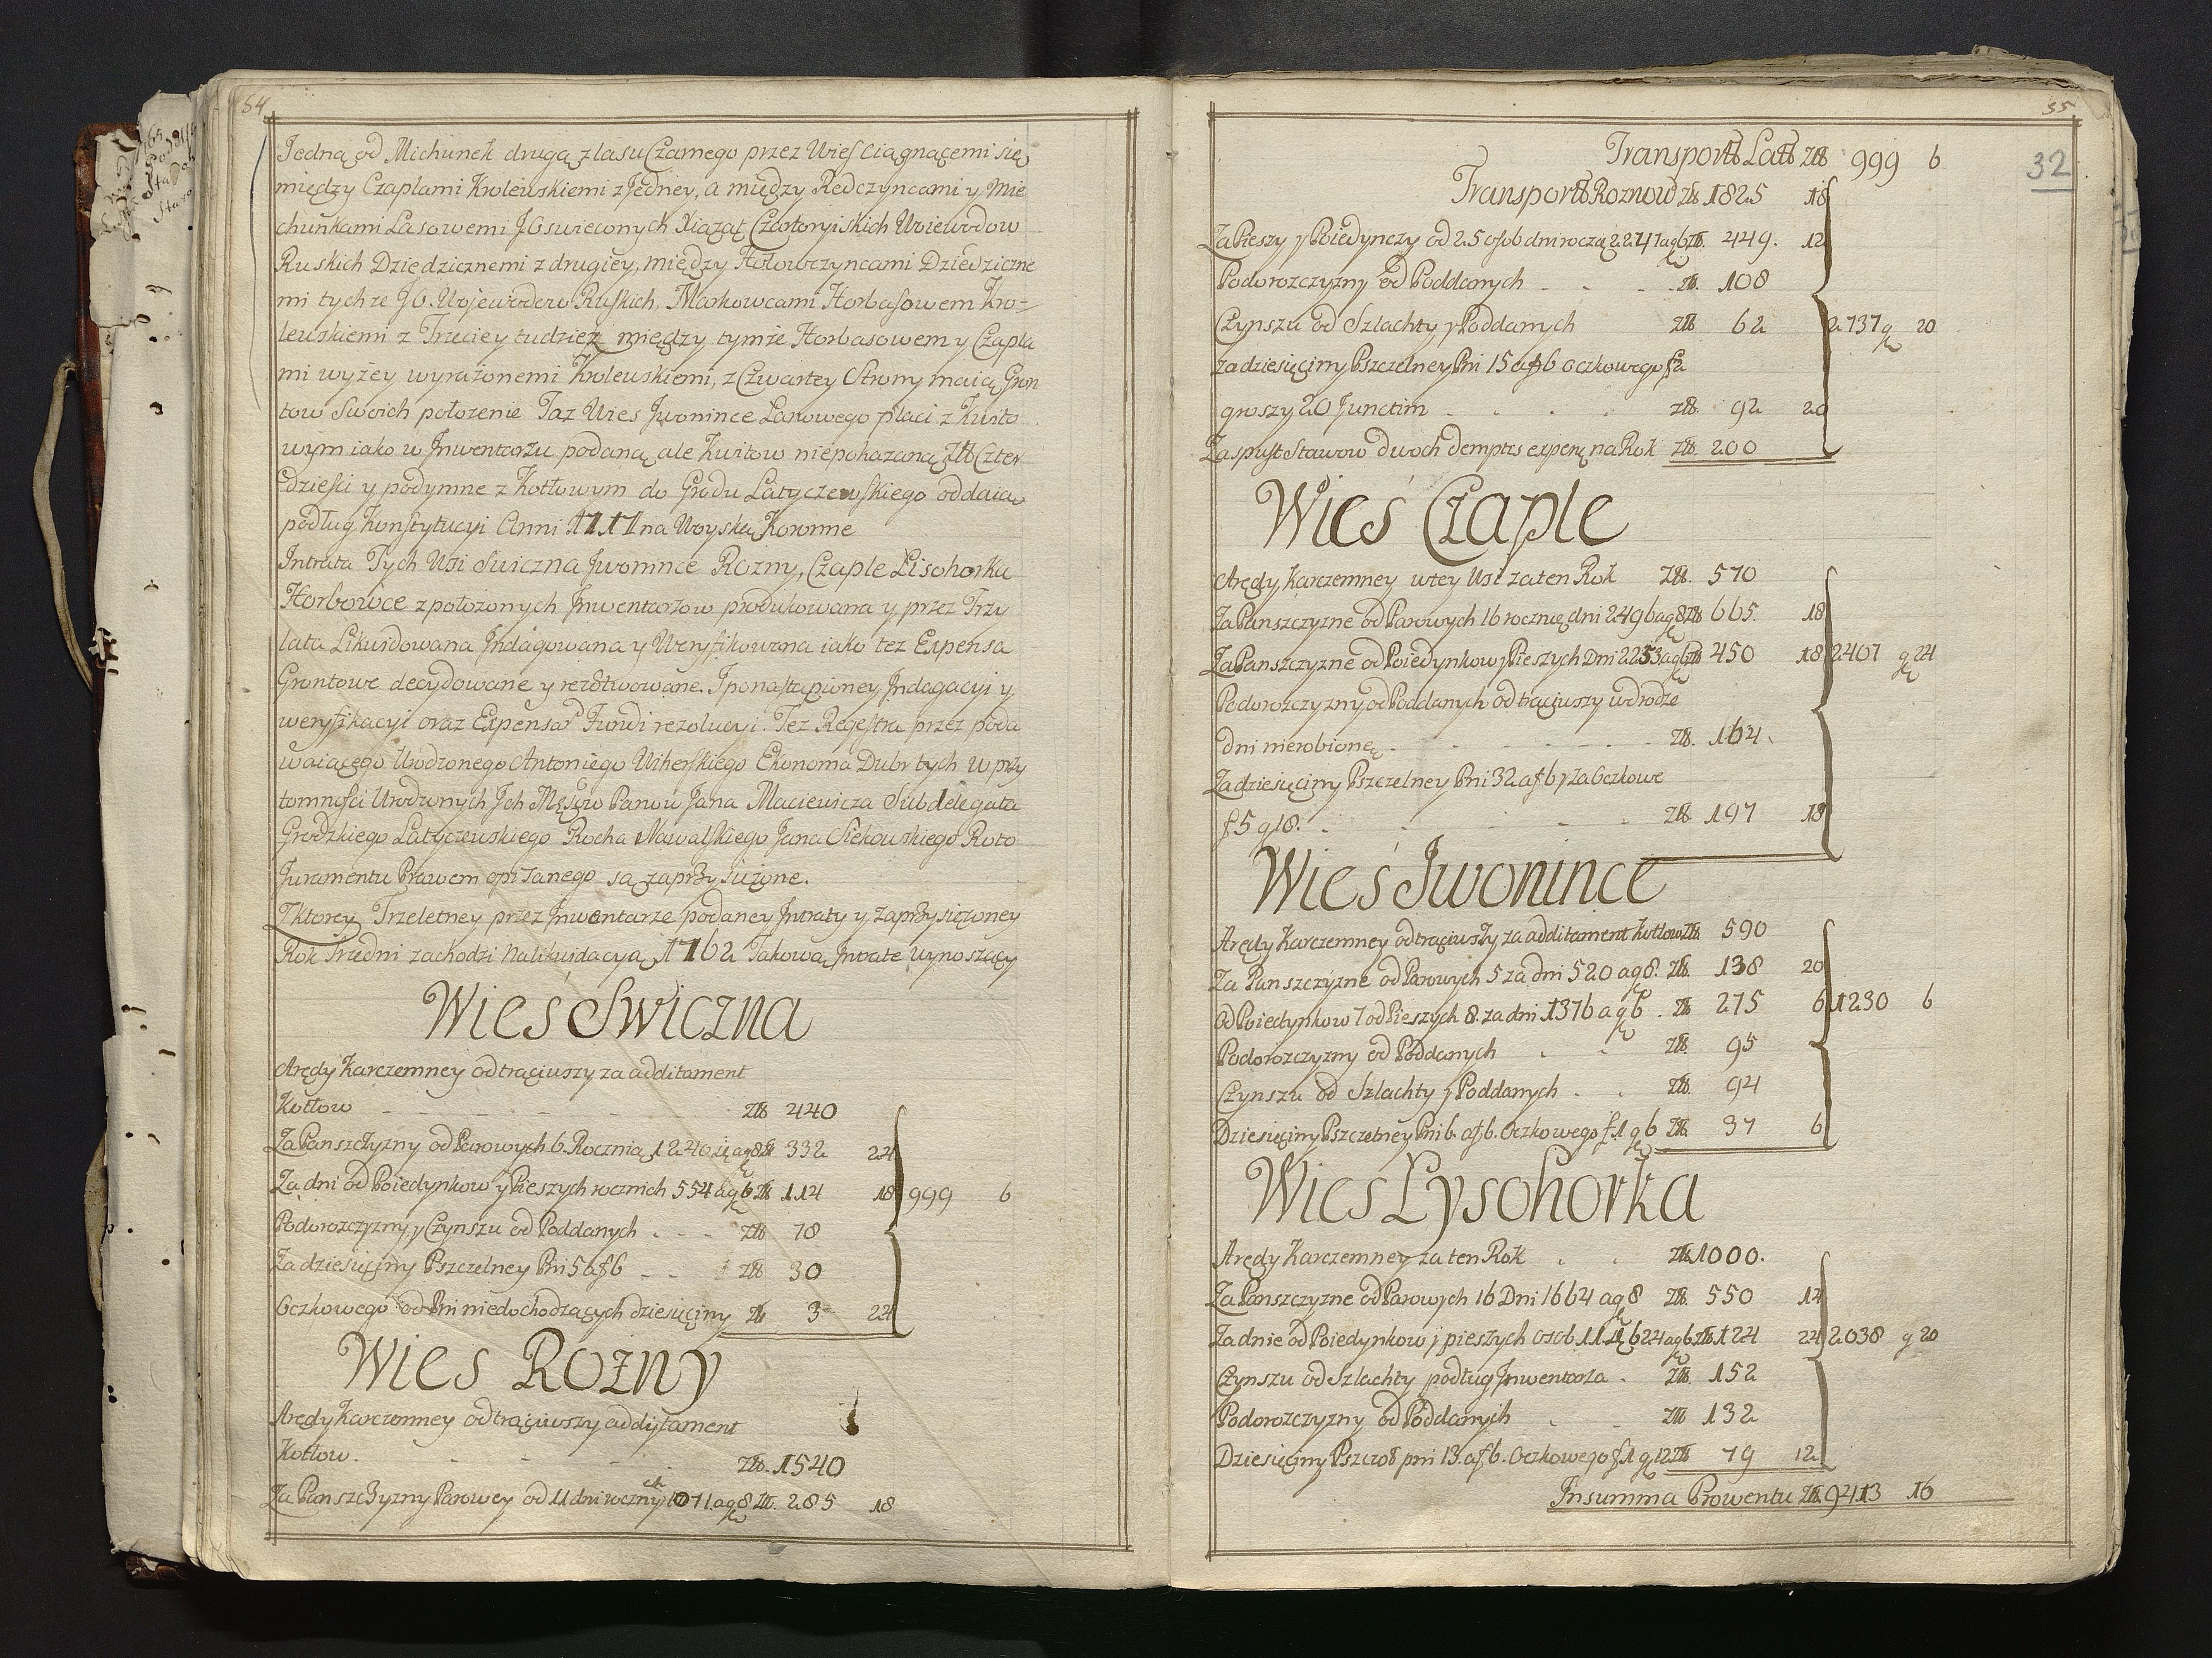 54
Jedną od Michunek drugą z lasu Czarnego przez Wieś ciągnącemi się
między Czaplami Krolewskiemi z Jedney, a między Redczyncami y Mie
chunkami Lasowemi JOswieconych Xiażąt Czartoryiskich Woiewodow
Ruskich Dziedzicznemi z drugiey, między Hołowczyncami Dziedziczne
mi tychże JO. Woiewodow Ruskich, Markowcami Horbasowem Kro-
lewskiemi z Trzeciey tudzież między tymże Horbasowem y Czapla
mi wyżey wyrażonemi Krolewskiemi, z Czwartey Strony maią Gron
tow Swoich położenie Taz Wies Jwonince Łanowego płaci z Kwito
wym iako w Jnwentarzu podaną ale Kwitow niepokazaną Zlł Czter
dzieści y podymne z Kotłowym do Grodu Latyczewskiego oddaią
podług Konstytucyi Anni 1717 na Woyska Koronne
Intrata Tych Wsi Swiczna Jwonince Rozny, Czaple Lisohorka
Horbowce z położonych Jnwentarzow produkowana y przez Trzy
lata Likwidowana Jndagowana y Weryfikowana iako tez Expensa
Gruntowe decydowane y rezolwowane. I po nastąpioney Jndagacyi y
weryfikacyi oraz Expensa Fundi rezolucyi. Tez Regestra przez poda
waiącego Urodzonego Antoniego Wiherskiego Ekonoma Dubr tych w przy
tomności Urodzonych Jch Msciow Panow Jana Maciewicza Subdelegata
Grodzkiego Latyczewskiego Rocha Nawalskiego Jana Siekowskiego Roto
Juramentu Prawem opisanego są zaprzysiężone.
Z ktorey Trzeletney przez Jnwentarze podaney Jntraty y zaprzysiężoney
Rok Średni zachodzi na likwidacyą 1762 Takową Jntratę wynoszący
Wieś Swiczna
Arędy Karczemney odtrąciwszy za additament
Kotłow Zlł 440
Za Panszczyzny od Parowych 6. Rocznia 1240 a g 8 Zł 332 24
Za dni od Poiedynkow y Pieszych rocznich 554 a g 6 Zlł 114 18 999 6
Podorozczyzny y Czynszu od Poddanych Zlł 78
Za dziesięciny Pszczelney Pni 5 a f 6 Zlł 30
Oczkowego od Pni niedochodzących dziesięciny Zlł 3 24
Wies Rozny
Arędy Karczemney odtrąciwszy addytament
Kotłow. Zlł. 1540
Za Panszczyzny Parowey od 11 dni roczny ch 1071 a g 8 Zlł. 285 18
35
32
Transportt Latt Zlł 999 6
Transportt Roznow Zlł. 1825 18
Za Pieszy y Poiedynczy od 25 osob dni roczą 2247 a g 6 Zlł. 449. 12
Podorozczyzny od Poddanych Zlł. 108
Czynszu od Szlachty y Poddanych Zlł 62 2737 g 20
za dziesięciny Pszczelney Pni 15 a f 6 Oczkowego f 2
groszy 20 Junctim Zlł. 92 20
Za spust Stawow dwoch demptis expens na Rok Zlł. 200
Wieś Czaple
Arędy Karczemney w tey Wsi za ten Rok Zlł. 570
Za Panszczyzne od Parowych 16 rocznie dni 2496 a g 8 Zlł 665. 18
Za Panszczyzne od Poiedynkow y Pieszych Dni 2253 a g 6 Zlł 450 18 2407 g 24
Podorozczyzny od Poddanych odtrąciwszy w drodze
dni nierobione Zlł. 164.
Za dziesięciny Pszczelney Pni 32 a f 6 y za Oczkowe
f 5 g 18. Zlł. 197 18
Wieś Jwonince
Arędy Karczemney odtrąciwszy za additament Kotłow Zlł. 590
Za Panszczyzne od Parowych 5 za dni 520 a g 8. Zlł. 138 20
Od Poiedynkow 7 od Pieszych 8. za dni 1376 a g 6. Zlł 275 6 1230 6
Podorozczyzny od Poddanych Zlł. 95
Czynszu od Szlachty y Poddanych Zlł. 94
Dziesięciny Pszczelney Pni 6. a f 6. Oczkowego f. 1 g 6 Zlł. 37 6
Wies Łysohorka
Arędy Karczemney za ten Rok Zlł. 1000.
Za Panszczyzne od Parowych 16 Dni 1664 a g 8 Zlł. 550 14
Za dnie od Poiedynkow y pieszych osob 11 624 a g 6 Zlł. 124 24 2038 g 20
Czynszu od Szlachty podług Jnwentarza Zlł. 152
Podorozczyzny od Poddanych Zlł 132
Dziesięciny Pszczoł pni 13. a f 6. Oczkowego f 1 g 12 Zlł 79 12
Jn summa Prowentu Zlł. 9413 16